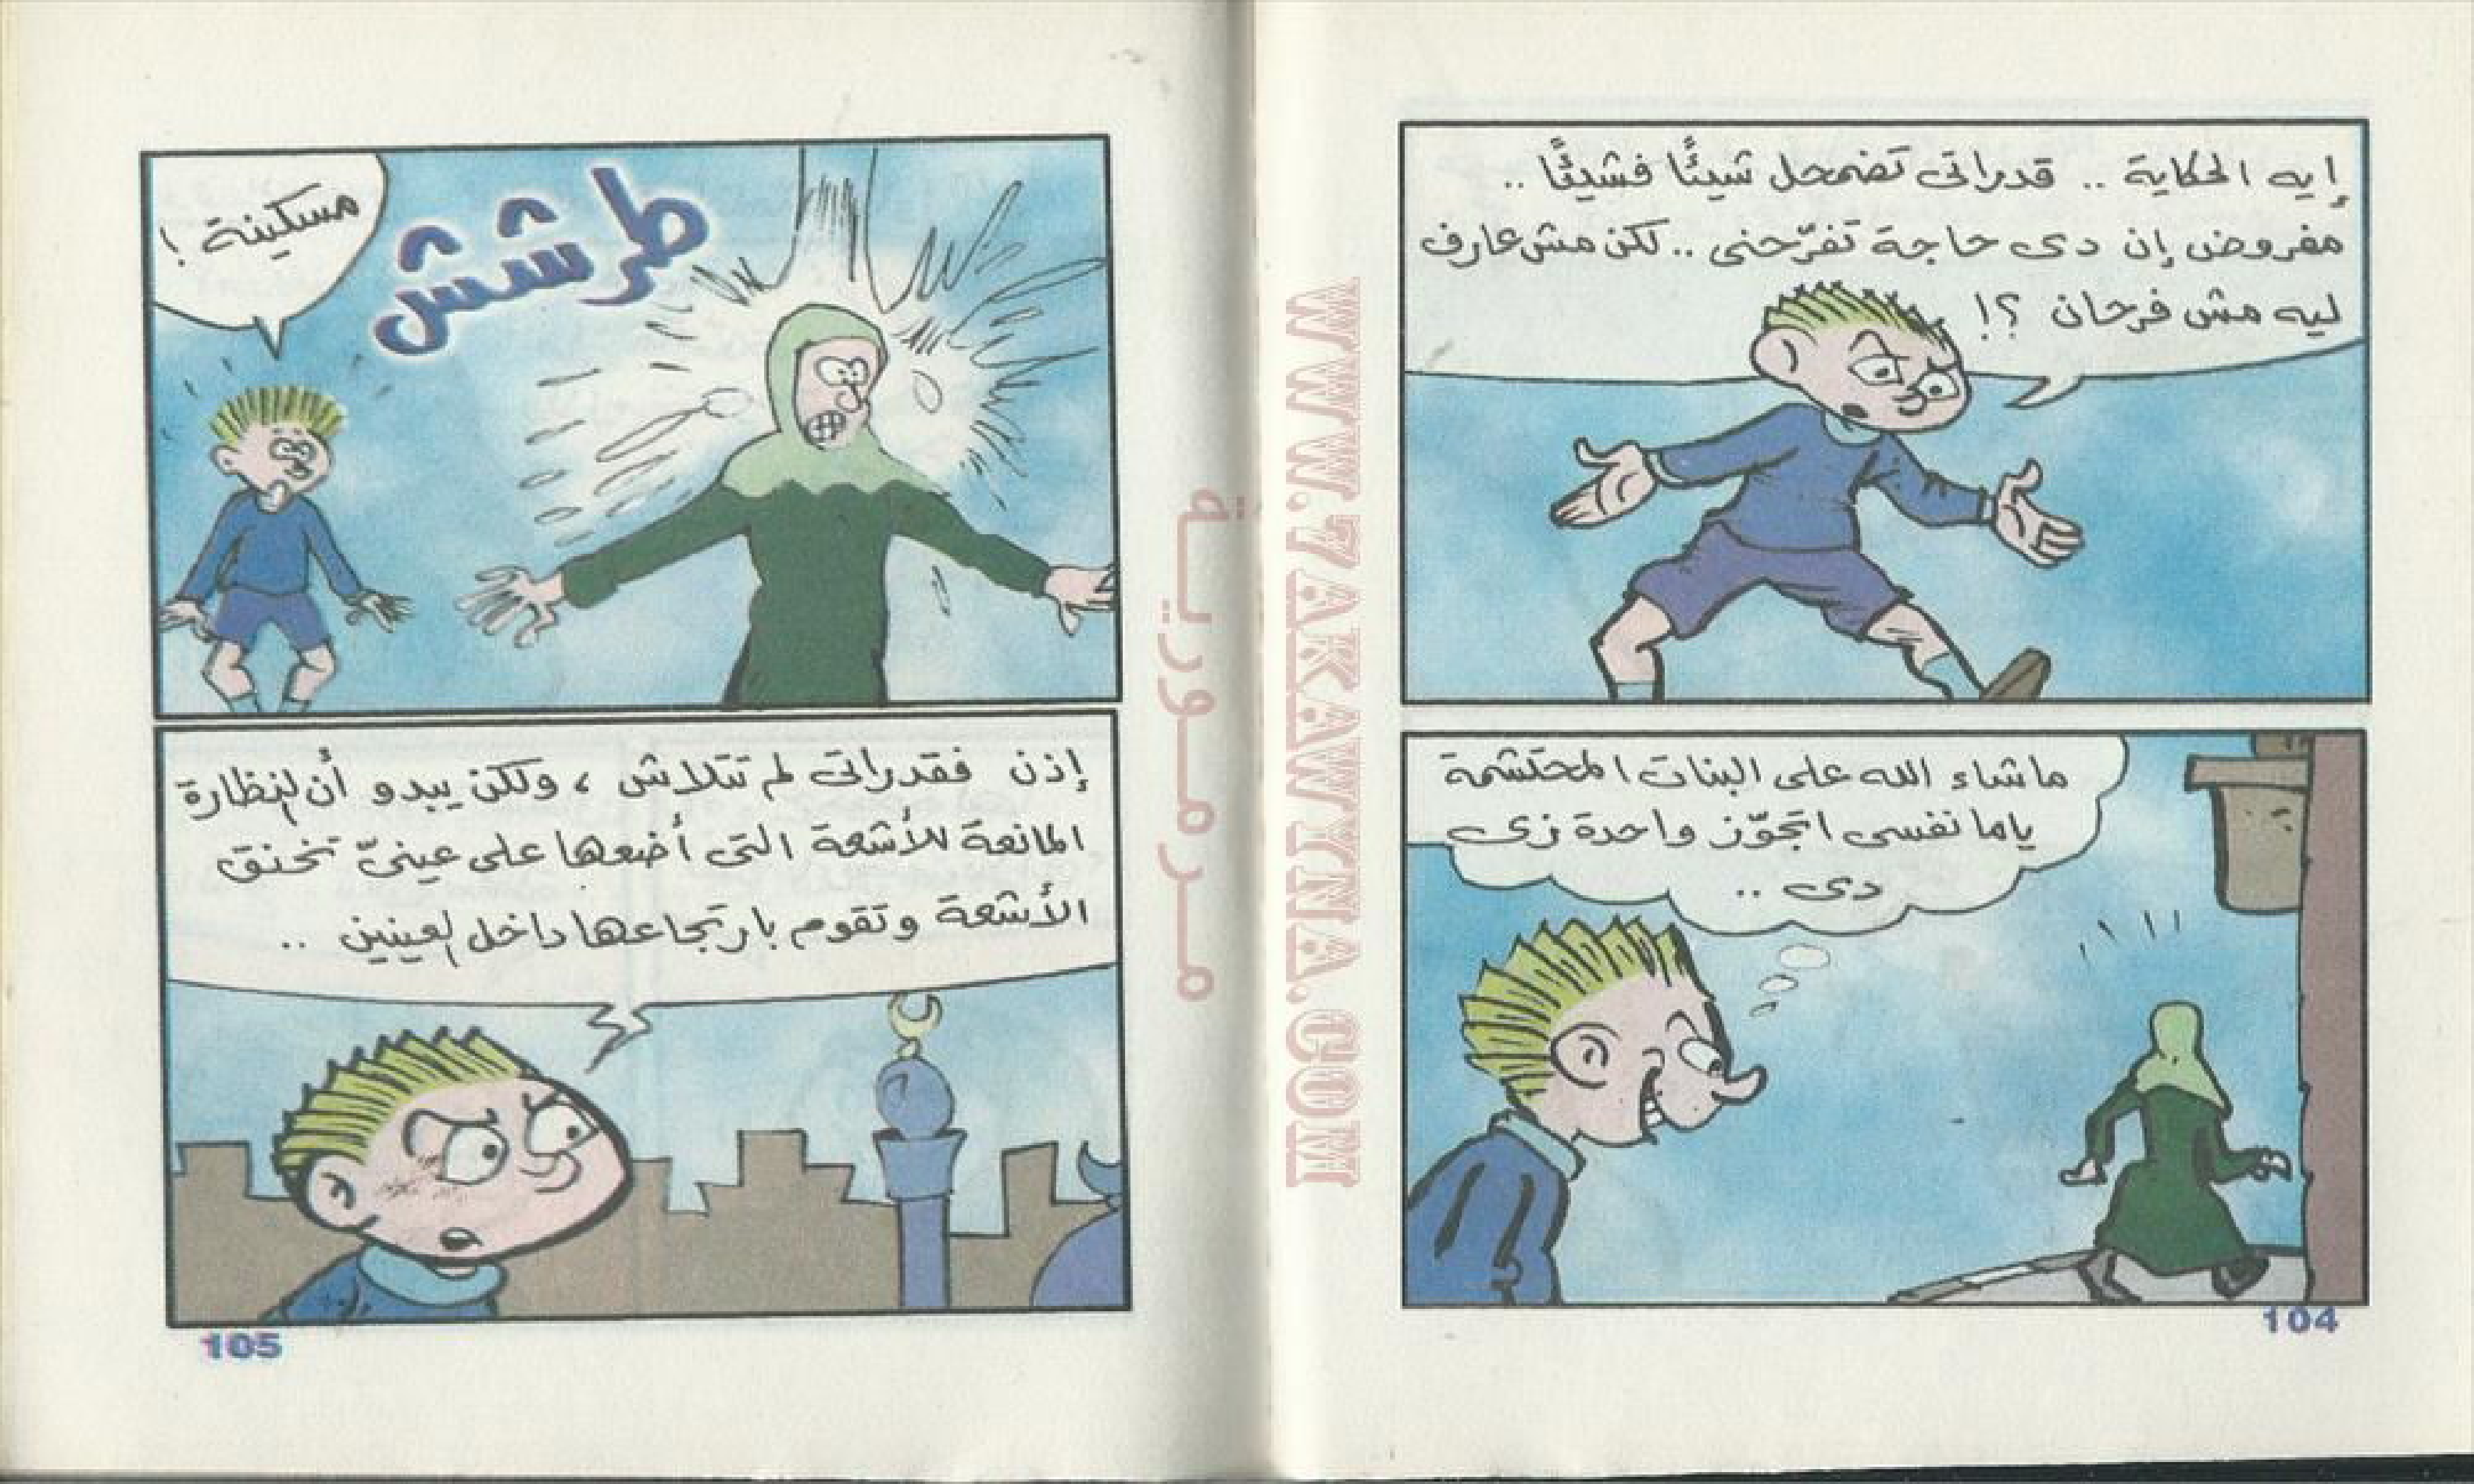 إيه الحكاية .. قدراتى تضمحل شيئًا فشيئًا ..
مفروض إن دى حاجة تفرّحنى .. لكن مش عارف
ليه مش فرحان ؟!
ماشاء الله على البنات المحتشمة
ياما نفسى اتجوّز واحدة زى
دى ..
104
WWW.7AKAWYNA.COM
مرمورية
مسكينة !
طرشش
إذن فقدراتى لم تتلاش ، ولكن يبدو أن النظارة
المانعة للأشعة التى أضعها على عينىّ تخنق
الأشعة وتقوم بارتجاعها داخل العينين ..
105